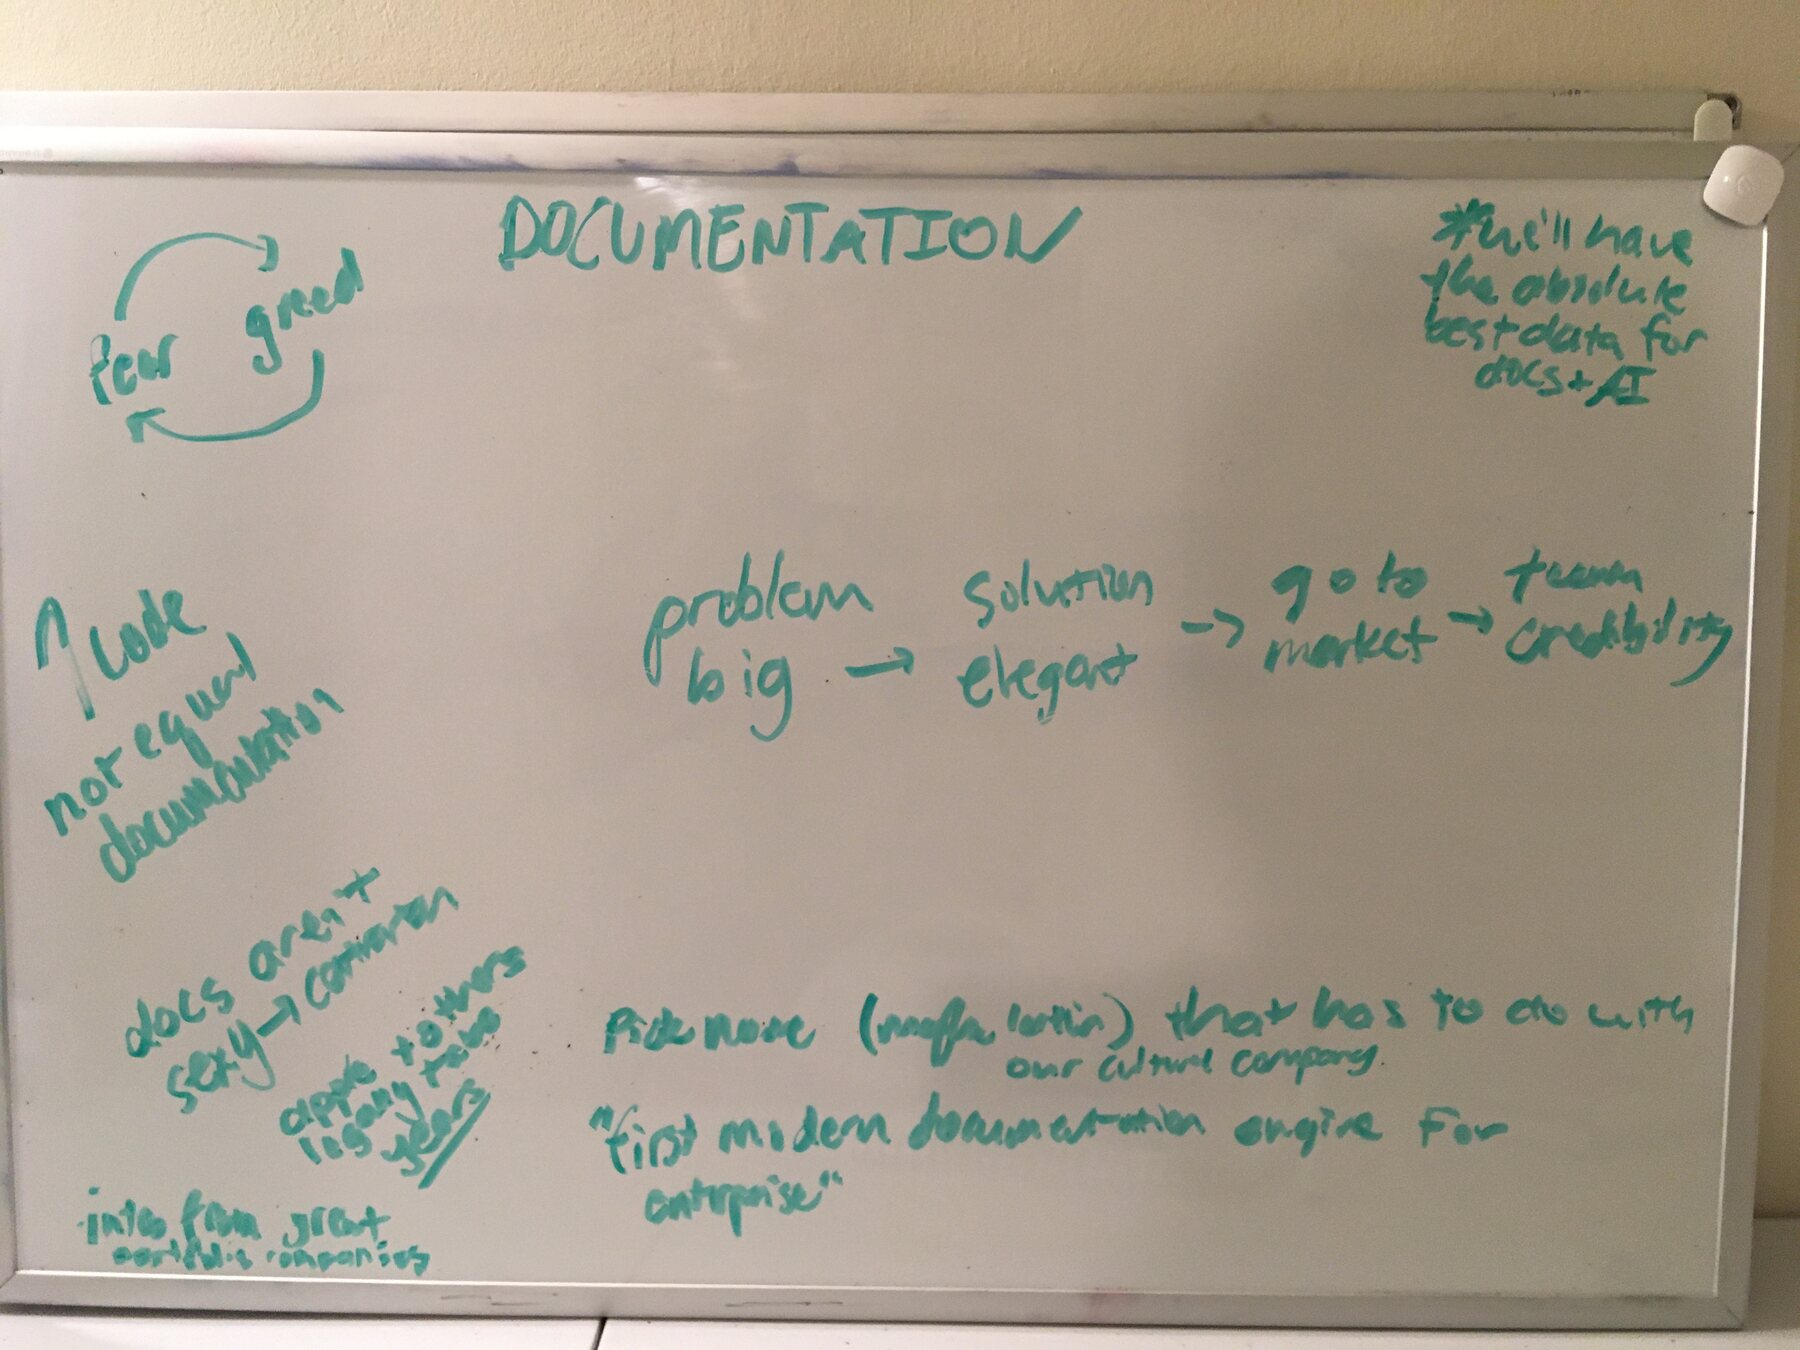 DOCUMENTATION
fear greed
*we'll have
the absolute
best data for
docs + AI
problem
big → solution
elegant → go to
market → team
credibility
↑ code
not equal
documentation
docs aren't
sexy → contrarian
apple to others
legacy takes
years
intro from great
portfolio companies
Pick name (latin) that has to do with
our culture company
"first modern documentation engine for
enterprise"